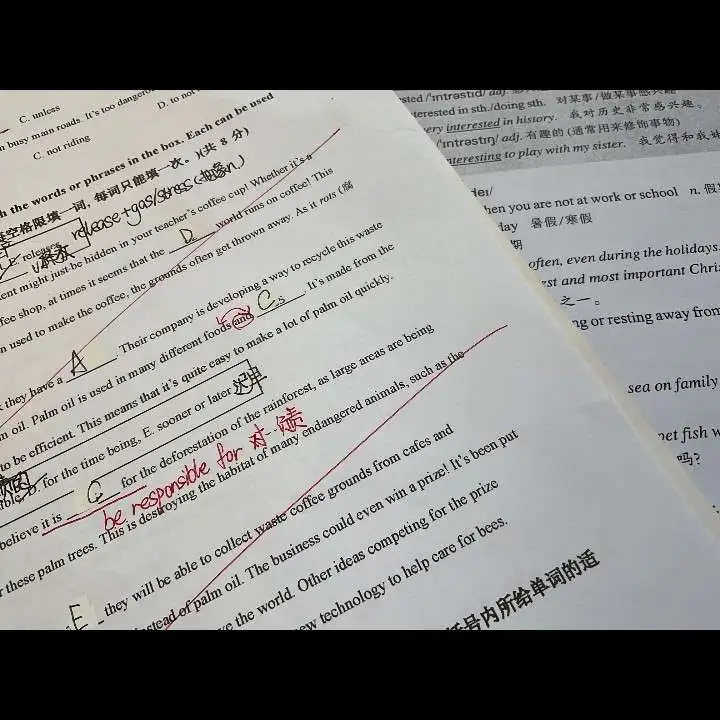 C. unless
busy main roads. It's too dangero
D. to not
C. not riding
h the words or phrases in the box. Each can be used
空格限填一词, 每词只能填一次。)(共 8 分)
E releases
v.释放 release+gas/stress
ent might just be hidden in your teacher's coffee cup! Whether it's a
fee shop, at times it seems that the D world runs on coffee! This
n used to make the coffee, the grounds often got thrown away. As it rots (腐
they have a A . Their company is developing a way to recycle this waste
oil. Palm oil is used in many different foods and C . It's made from the
to be efficient. This means that it's quite easy to make a lot of palm oil quickly.
for the time being, E. sooner or later 迟早
believe it is C for the deforestation of the rainforest, as large areas are being
be responsible for 对…负责
these palm trees. This is destroying the habitat of many endangered animals, such as the
E they will be able to collect waste coffee grounds from cafes and
stead of palm oil. The business could even win a prize! It's been put
the world. Other ideas competing for the prize
ew technology to help care for bees.
号内所给单词的适
sted /'ɪntrəstɪd/ adj.
terested in sth./doing sth. 对某事/做某事感兴趣
ery interested in history. 我对历史非常感兴趣。
/'ɪntrəstɪŋ/ adj. 有趣的 (通常用来修饰事物)
nteresting to play with my sister. 我觉得和我
deɪ/
hen you are not at work or school n. 假
day 暑假/寒假
期
often, even during the holidays.
st and most important Chri
之一。
ng or resting away from
sea on family
pet fish w
吗?